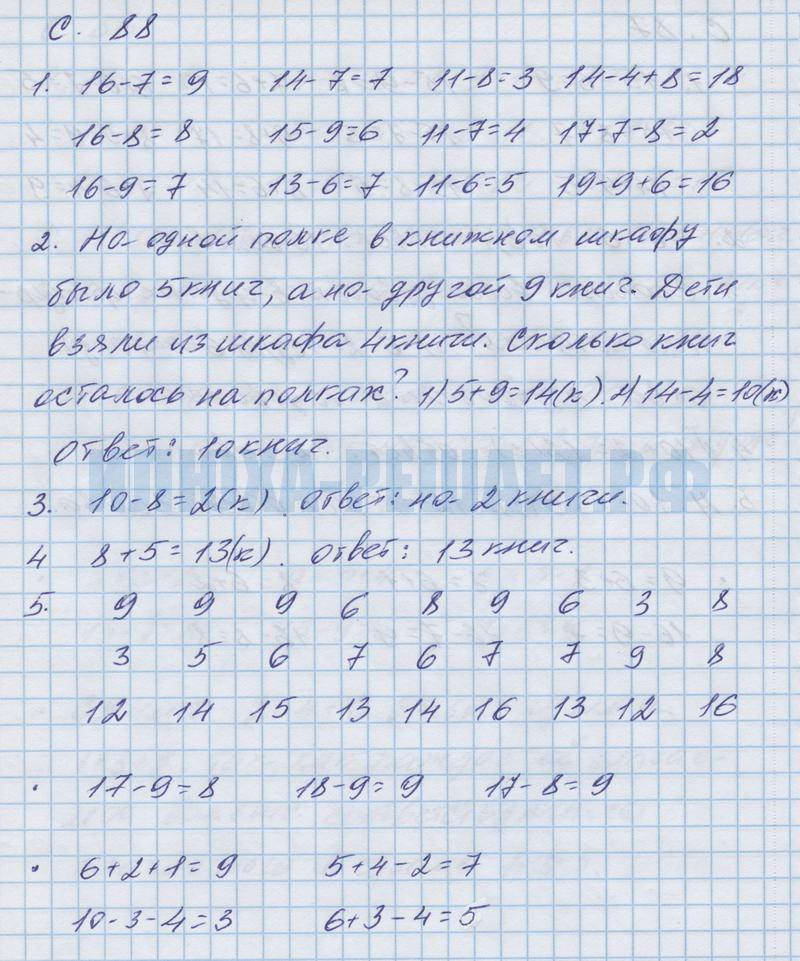 С. 88
1. 16-7=9 14-7=7 11-8=3 14-4+8=18
16-8=8 15-9=6 11-7=4 17-7-8=2
16-9=7 13-6=7 11-6=5 19-9+6=16
2. На одной полке в книжном шкафу
было 5 книг, а на другой 9 книг. Дети
взяли из шкафа 4 книги. Сколько книг
осталось на полках? 1) 5+9=14(к). 2) 14-4=10(к)
Ответ: 10 книг.
3. 10-8=2(к). Ответ: на 2 книги.
4 8+5=13(к). Ответ: 13 книг.
5. 9 9 9 6 8 9 6 3 8
3 5 6 7 6 7 7 9 8
12 14 15 13 14 16 13 12 16
. 17-9=8 18-9=9 17-8=9
. 6+2+1=9 5+4-2=7
10-3-4=3 6+3-4=5